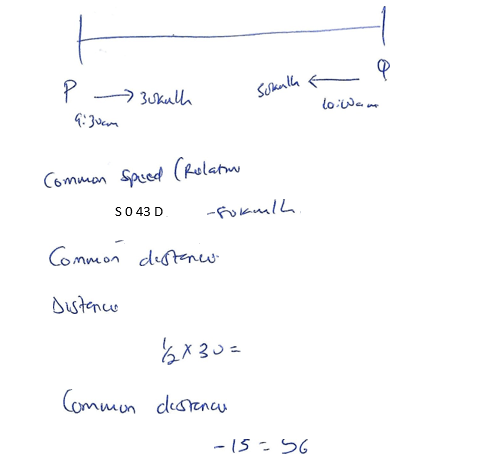 P → 30km/h
9:30am
Q
50km/h ←
10:00am
Common Speed (Relative
S 0 43 D -80km/h
Common distance
Distance
1/2 x 30 =
Common distance
-15 = 56